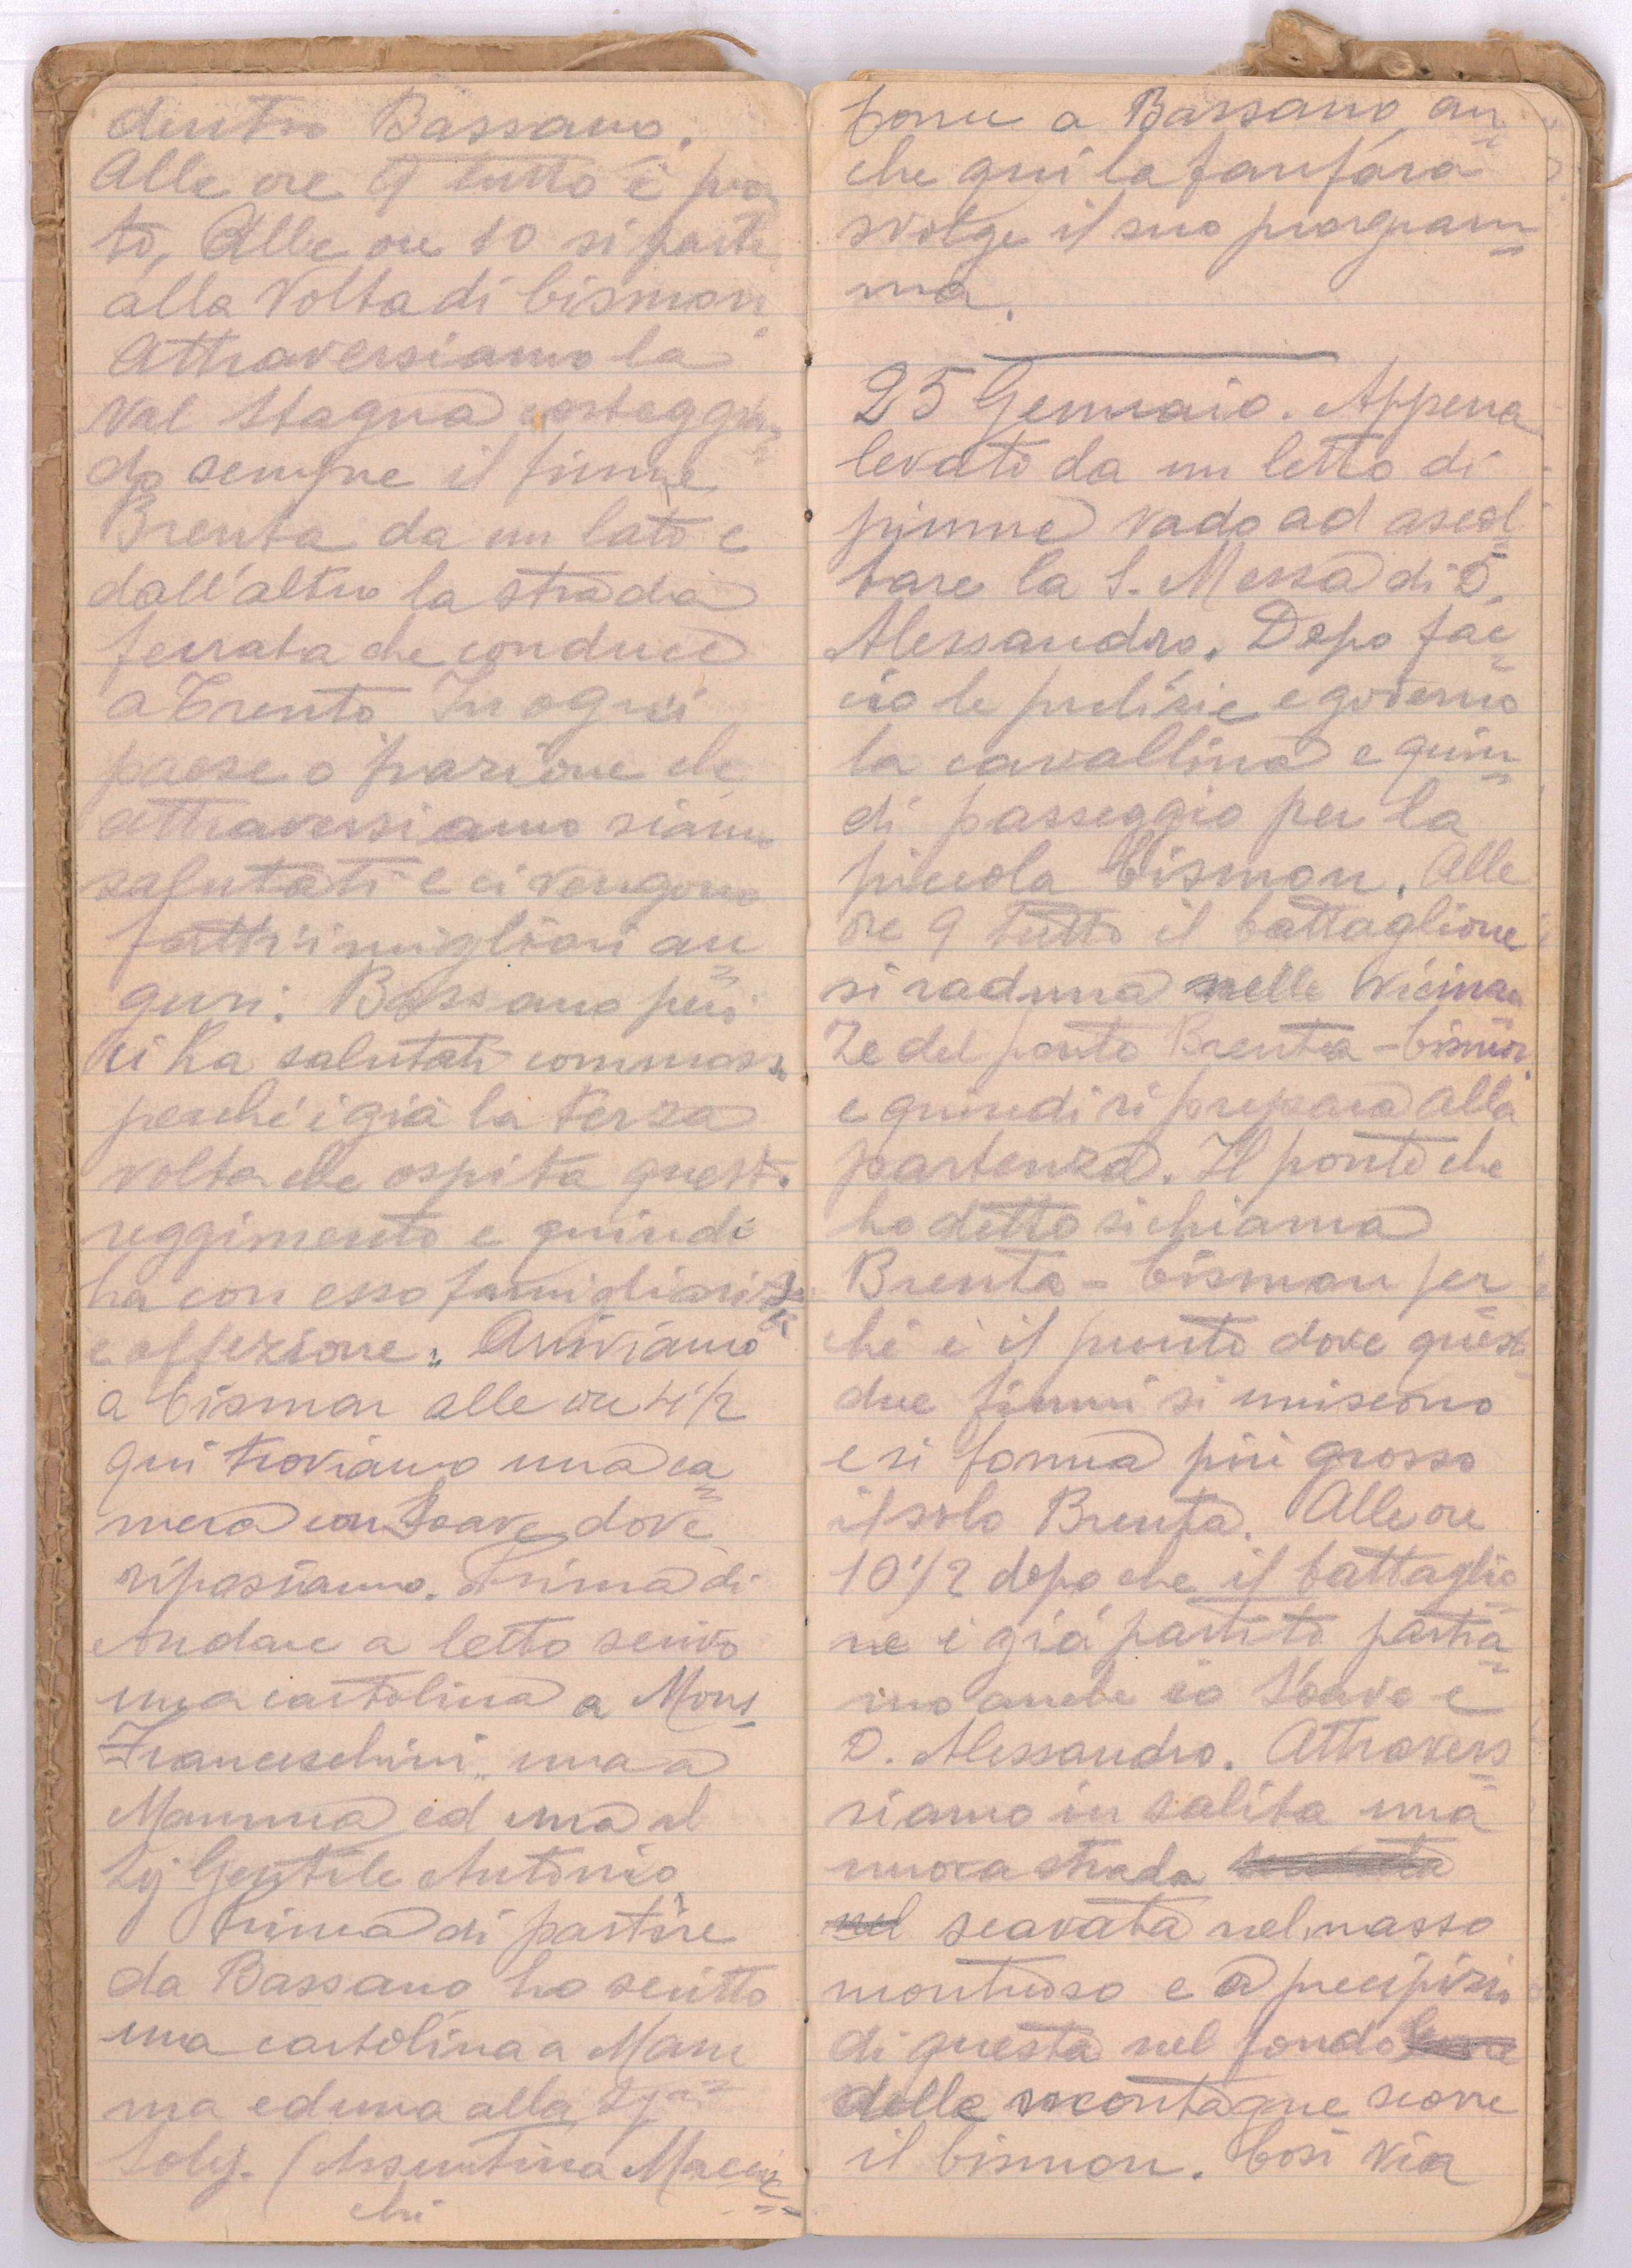 dentro Bassano.
Alle ore 9 tutto è pron
to, Alle ore 10 si parte
alla Volta di Cismon
Attraversiamo la
Val Stagna costeggian=
do sempre il fiume
Brenta da un lato e
dall'altro la strada
ferrata che conduce
a Trento In ogni
paese o frazione che
attraversiamo siamo
salutati e ci vengono
fatti i migliori au=
guri: Bassano però
ci ha salutati commossi
perchè è già la terza
volta che ospita questo
reggimento e quindi
ha con esso famigliarità
e affezione. Arriviamo
a Cismon alle ore 4 1/2
qui troviamo una ca=
mera con Soave dove
riposiamo. Prima di
Andare a letto scrivo
una cartolina a Mons.
Franceschini, una a
Mamma ed una al
Sig Gentile Antonio
Prima di partire
da Bassano ho scritto
una cartolina a Mam=
ma ed una alla Sg.na
Soly. (Assuntina Macec=
chi
come a Bassano an=
che qui la fanfara
svolge il suo program=
ma.
25 Gennaio. Appena
levato da un letto di
piume vado ad ascol=
tare la S. Messa di D.
Alessandro. Dopo fac=
cio le pulizie e governo
la cavallina e quin=
di passeggio per la
piccola Cismon. Alle
ore 9 tutto il battaglione
si raduna nelle vicinan=
ze del ponte Brenta-Cismon
e quindi si prepara alla
partenza. Il ponte che
ho detto si chiama
Brenta-Cismon per=
chè è il punto dove questi
due fiumi si uniscono
e si forma più grosso
il solo Brenta. Alle ore
10 1/2 dopo che il battaglio=
ne è già partito partia=
mo anche io Soave e
D. Alessandro. Attraver=
siamo in salita una
nuova strada
nel scavata nel masso
montuoso e a precipizio
di questa nel fondo
delle montagne scorre
il Cismon. Così via